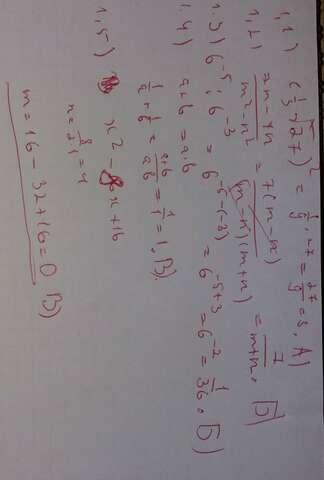 1,1) (1/3 √27)² = 1/9 · 27 = 27/9 = 3. А)
1,2) 7m-7n / m²-n² = 7(m-n) / (m-n)(m+n) = 7 / m+n. Б)
1,3) 6⁻⁵ : 6⁻³ = 6⁻⁵⁻⁽⁻³⁾ = 6⁻⁵⁺³ = 6⁻² = 1/36. Б)
1,4) a+b = a·b
1/a + 1/b = a+b / ab = 1/1 = 1. В)
1,5) x² - 8x + 16
x = 8 / 2·1 = 4
m = 16 - 32 + 16 = 0 В)